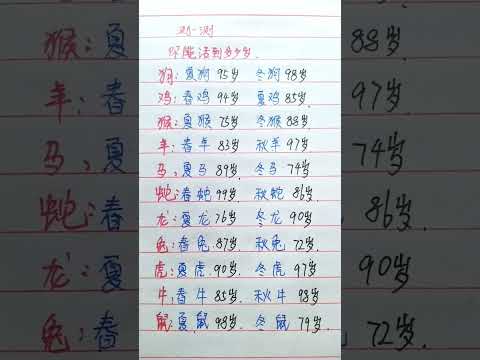 测一测
你能活到多少岁.
狗:夏狗 95岁 冬狗 98岁.
鸡:春鸡 94岁 夏鸡 85岁.
猴:夏猴 75岁 冬猴 88岁.
羊:春羊 83岁 秋羊 97岁
马,夏马 89岁. 冬马 74岁
蛇:春蛇 99岁. 秋蛇 86岁
龙:夏龙 76岁 冬龙 90岁.
兔:春兔 87岁 秋兔 72岁.
虎:夏虎. 90岁. 冬虎 97岁
牛,春牛 85岁. 秋牛 98岁
鼠:夏鼠 98岁. 冬鼠 79岁.
猴:夏
羊:春
马,夏
蛇:春
龙:夏
兔:春
88岁.
97岁
74岁
86岁.
90岁
72岁.